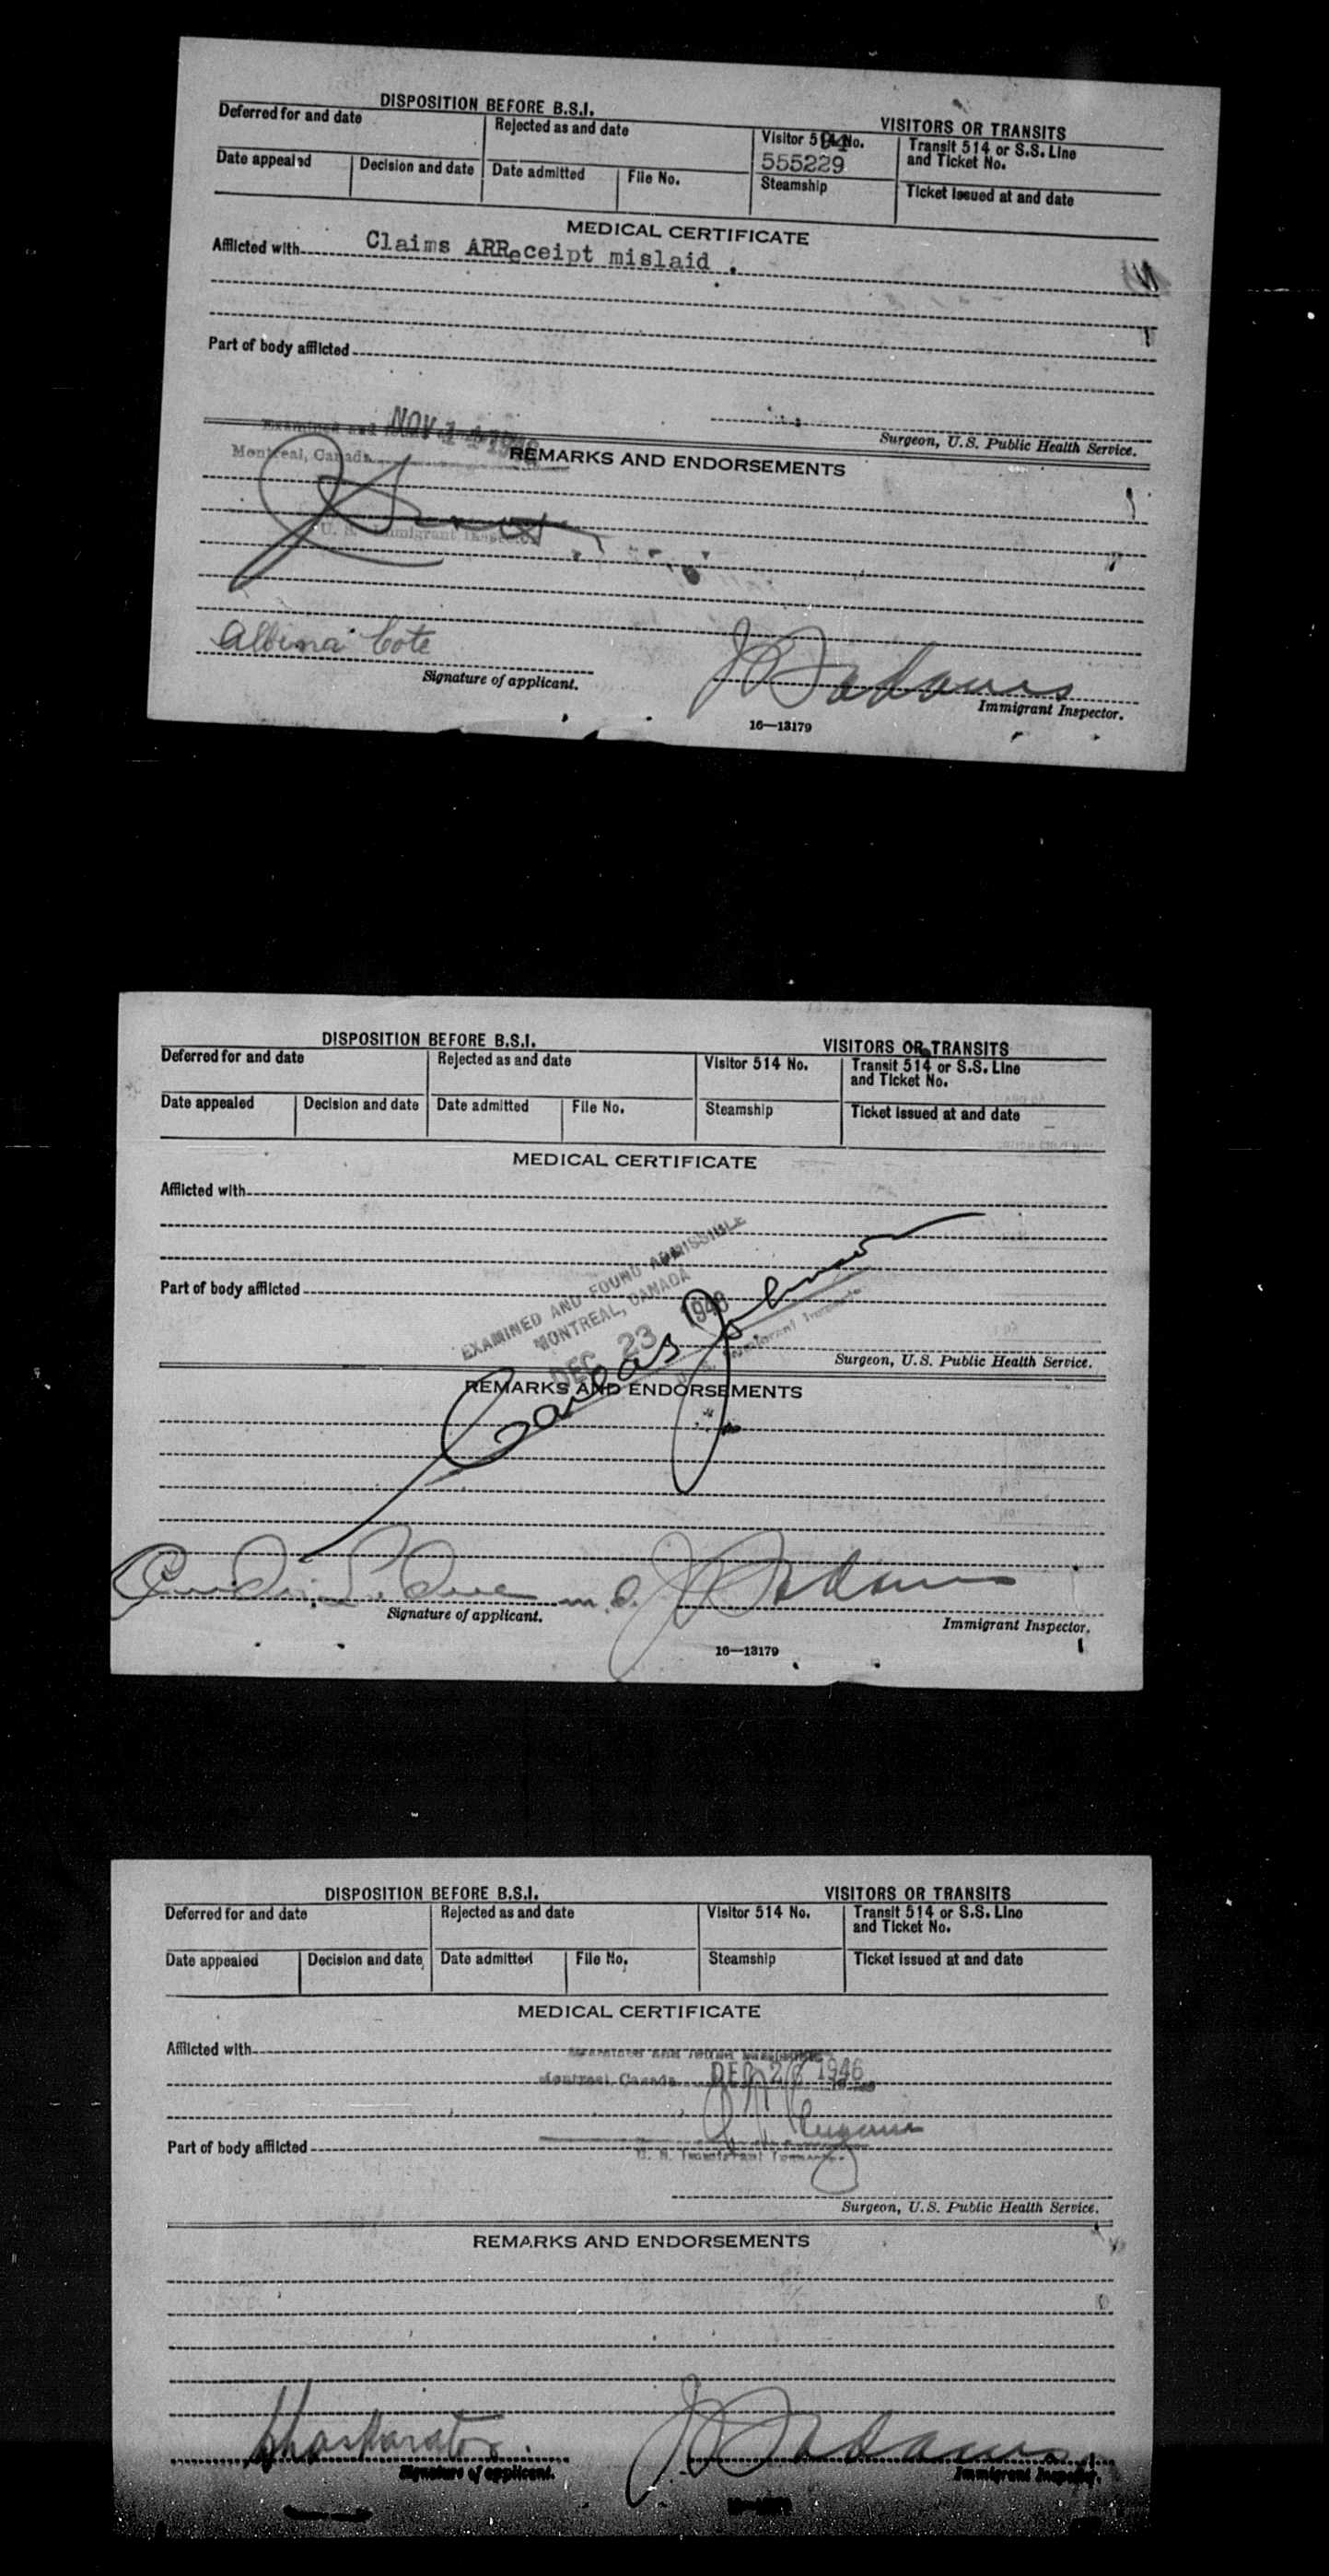 DISPOSITION BEFORE B.S.I.
VISITORS OR TRANSITS
Deferred for and date
Rejected as and date
Visitor 514 No.
555229
Transit 514 or S.S. Line
and Ticket No.
Date appealed
Decision and date
Date admitted
File No.
Steamship
Ticket issued at and date
MEDICAL CERTIFICATE
Afflicted with Claims ARReceipt mislaid .
Part of body afflicted
Surgeon, U.S. Public Health Service.
NOV 14
Montreal, Canada
REMARKS AND ENDORSEMENTS
U. S. Immigrant Inspector
Albina Cote
Signature of applicant.
J Adams
Immigrant Inspector.
16—13179
DISPOSITION BEFORE B.S.I.
VISITORS OR TRANSITS
Deferred for and date
Rejected as and date
Visitor 514 No.
Transit 514 or S.S. Line
and Ticket No.
Date appealed
Decision and date
Date admitted
File No.
Steamship
Ticket issued at and date
MEDICAL CERTIFICATE
Afflicted with
Part of body afflicted
EXAMINED AND FOUND ADMISSIBLE
MONTREAL, CANADA
DEC 23 1946
U. S. Immigrant Inspector
Johnson
Surgeon, U.S. Public Health Service.
REMARKS AND ENDORSEMENTS
m.d.
Signature of applicant.
J Adams
Immigrant Inspector.
16—13179
DISPOSITION BEFORE B.S.I.
VISITORS OR TRANSITS
Deferred for and date
Rejected as and date
Visitor 514 No.
Transit 514 or S.S. Line
and Ticket No.
Date appealed
Decision and date
Date admitted
File No.
Steamship
Ticket issued at and date
MEDICAL CERTIFICATE
Afflicted with
Montreal, Canada DEC 26 1946
Part of body afflicted
U. S. Immigrant Inspector
Surgeon, U.S. Public Health Service.
REMARKS AND ENDORSEMENTS
Signature of applicant.
J Adams
Immigrant Inspector.